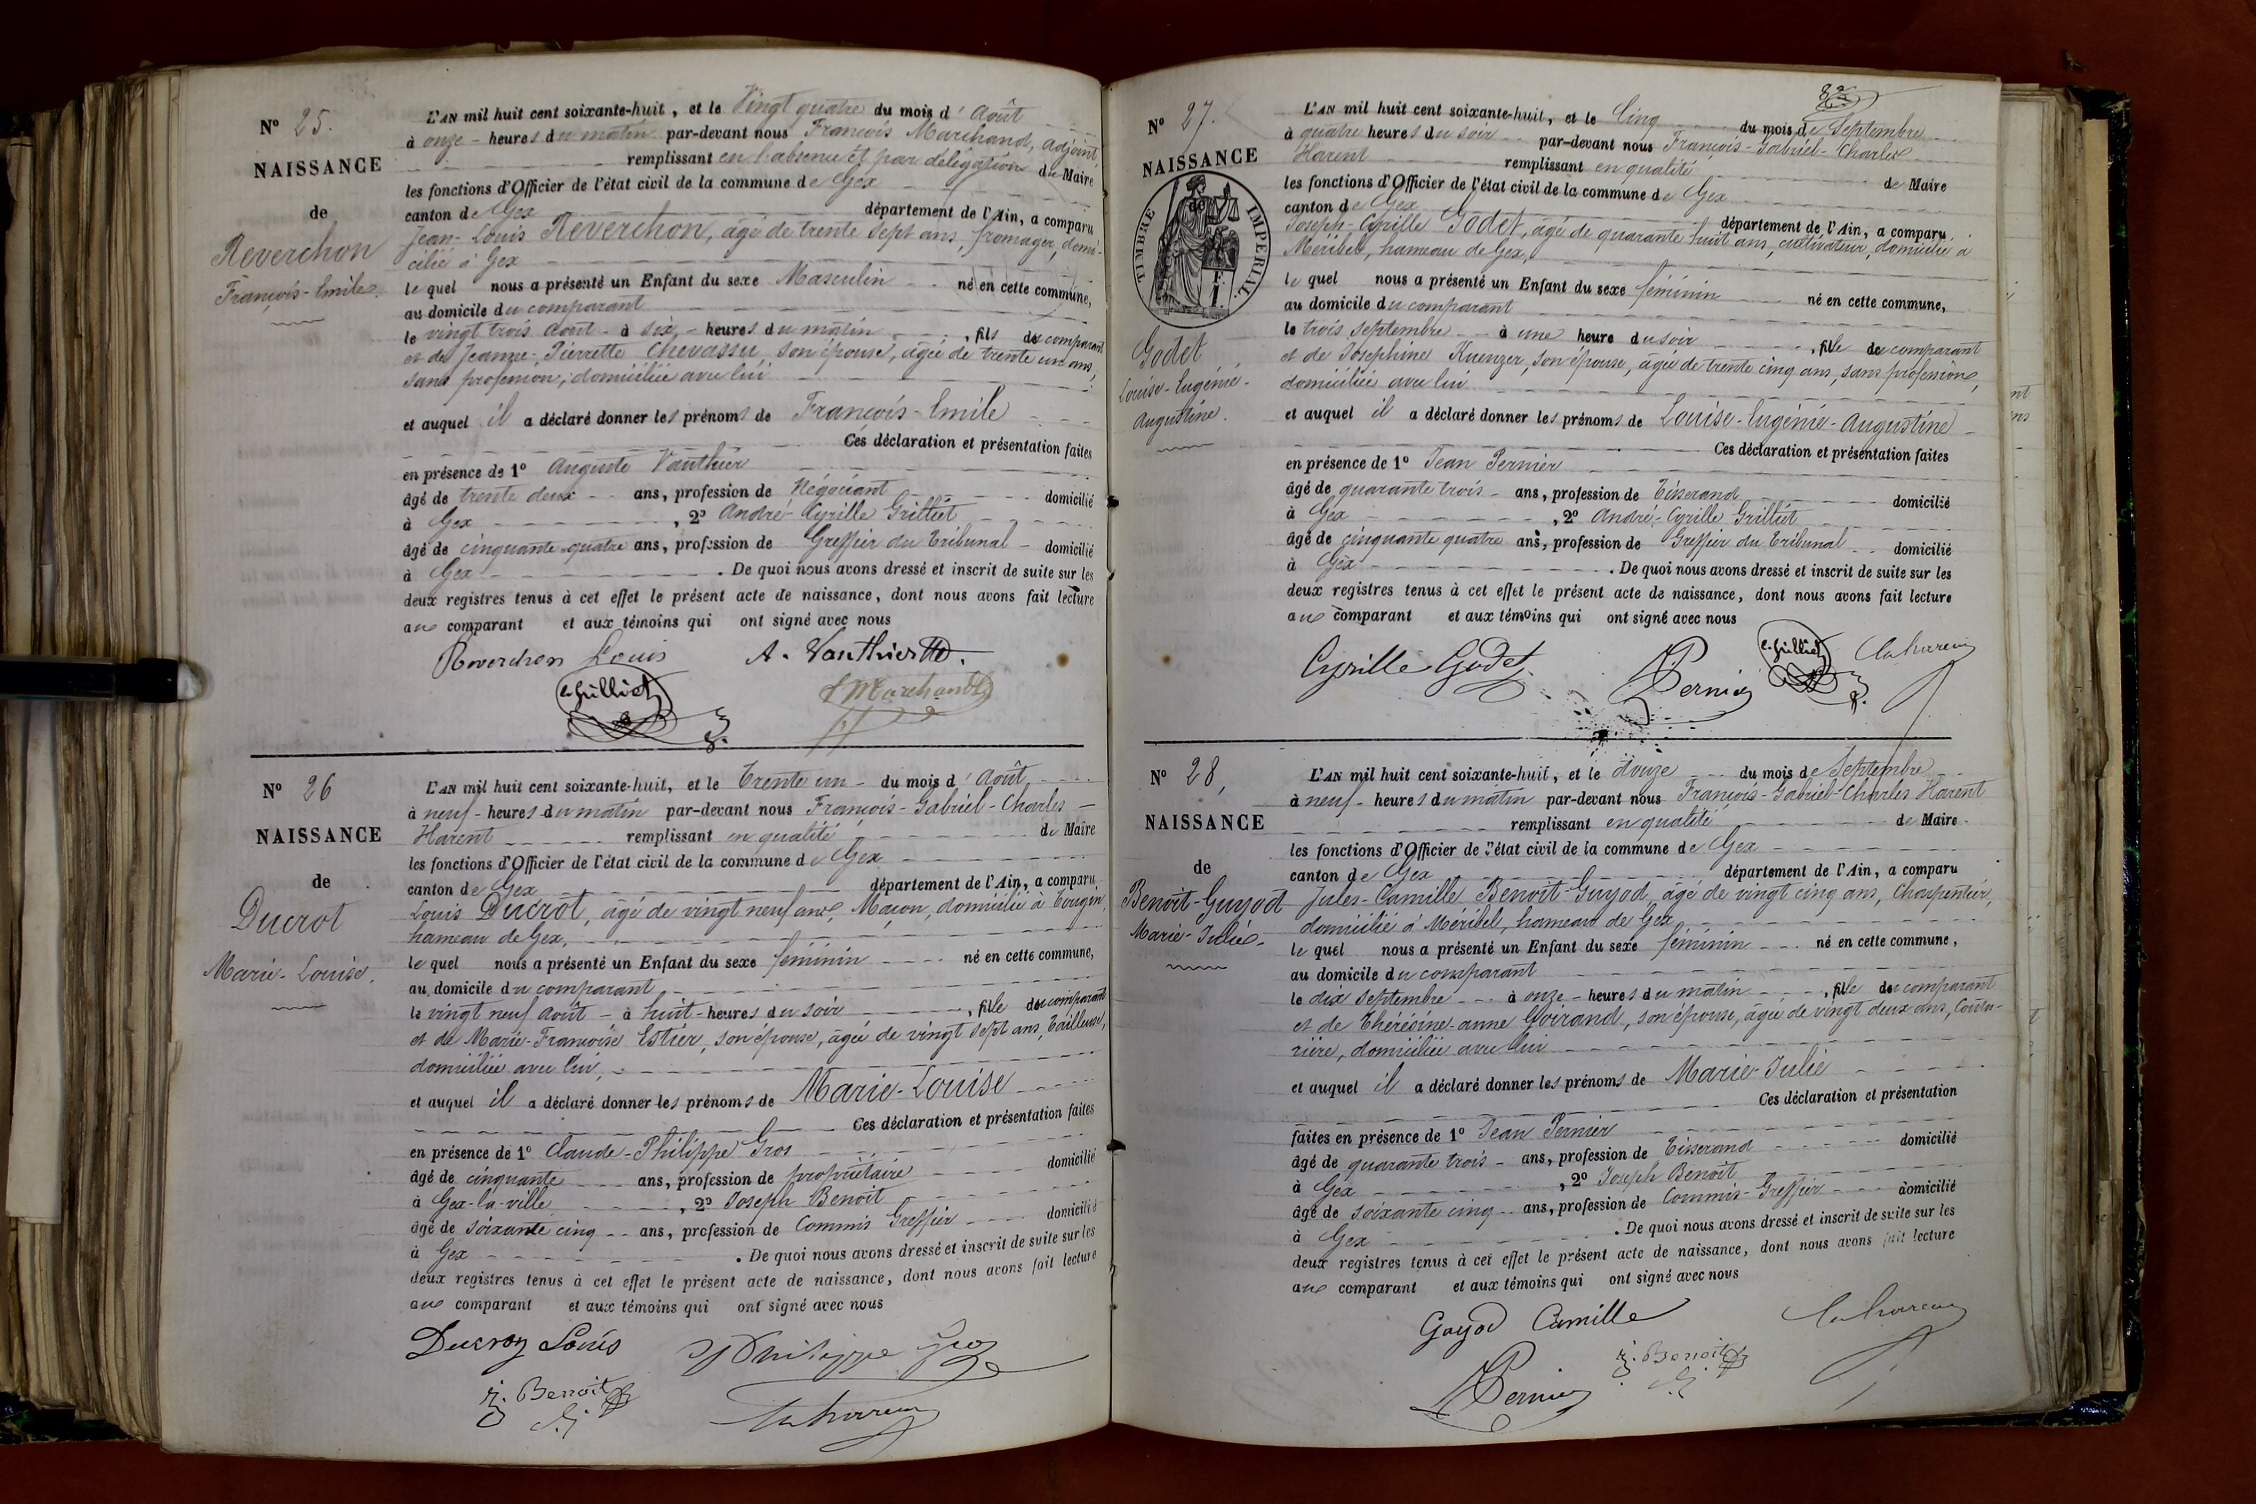 Nº 25.
NAISSANCE
de
Reverchon
François-Emile.
L'AN mil huit cent soixante-huit, et le Vingt quatre du mois d'Août
à onze - heures du matin par-devant nous François Marchand, adjoint
remplissant en l'absence et par délégation du Maire
les fonctions d'Officier de l'état civil de la commune de Gex
canton de Gex département de l'Ain, a comparu
Jean-Louis Reverchon, âgé de trente sept ans, fromager, domi-
cilié à Gex
le quel nous a présenté un Enfant du sexe Masculin né en cette commune,
au domicile du comparant
le vingt trois août - à six - heures du matin, fils du comparant
et de Jeanne-Pierrette Chevassu, son épouse, âgée de trente un ans,
sans profession, domiciliée avec lui
et auquel il a déclaré donner les prénoms de François-Emile
Ces déclaration et présentation faites
en présence de 1º Auguste Vauthier
âgé de trente deux ans, profession de Négociant domicilié
à Gex, 2º André-Cyrille Grilliet
âgé de cinquante quatre ans, profession de Greffier du Tribunal - domicilié
à Gex. De quoi nous avons dressé et inscrit de suite sur les
deux registres tenus à cet effet le présent acte de naissance, dont nous avons fait lecture
au comparant et aux témoins qui ont signé avec nous
Reverchon Louis A. Vauthier
C. Grilliet F Marchand
Nº 26
NAISSANCE
de
Ducrot
Marie-Louise.
L'AN mil huit cent soixante-huit, et le Trente un - du mois d'Août
à neuf - heures du matin par-devant nous François-Gabriel-Charles
Harent remplissant en qualité de Maire
les fonctions d'Officier de l'état civil de la commune de Gex
canton de Gex département de l'Ain, a comparu
Louis Ducrot, âgé de vingt neuf ans, Maçon, domicilié à Tougin,
hameau de Gex,
le quel nous a présenté un Enfant du sexe féminin né en cette commune,
au domicile du comparant
le vingt neuf août - à huit - heures du soir, fille du comparant
et de Marie-Françoise Estier, son épouse, âgée de vingt sept ans, Tailleuse,
domiciliée avec lui,
et auquel il a déclaré donner les prénoms de Marie-Louise
Ces déclaration et présentation faites
en présence de 1º Claude-Philippe Gros
âgé de cinquante ans, profession de propriétaire domicilié
à Gex-la-ville, 2º Joseph Benoit
âgé de soixante cinq ans, profession de Commis Greffier domicilié
à Gex. De quoi nous avons dressé et inscrit de suite sur les
deux registres tenus à cet effet le présent acte de naissance, dont nous avons fait lecture
au comparant et aux témoins qui ont signé avec nous
Ducroz Louis Philippe Gros
j. Benoit
Nº 27.
NAISSANCE
de
TIMBRE IMPERIAL.
Godet
Louise-Eugénie-
Augustine.
L'AN mil huit cent soixante-huit, et le Cinq du mois de Septembre
à quatre heures du soir par-devant nous François-Gabriel-Charles
Harent remplissant en qualité de Maire
les fonctions d'Officier de l'état civil de la commune de Gex
canton de Gex département de l'Ain, a comparu
Joseph-Cyrille Godet, âgé de quarante huit ans, cultivateur, domicilié à
Méribel, hameau de Gex,
le quel nous a présenté un Enfant du sexe féminin né en cette commune,
au domicile du comparant
le trois septembre à une heure du soir, fille du comparant
et de Josephine Kuenzer, son épouse, âgée de trente cinq ans, sans profession,
domiciliée avec lui
et auquel il a déclaré donner les prénoms de Louise-Eugénie-Augustine
Ces déclaration et présentation faites
en présence de 1º Jean Pernier
âgé de quarante trois - ans, profession de Tisserand domicilié
à Gex, 2º André-Cyrille Grilliet
âgé de cinquante quatre ans, profession de Greffier du Tribunal domicilié
à Gex. De quoi nous avons dressé et inscrit de suite sur les
deux registres tenus à cet effet le présent acte de naissance, dont nous avons fait lecture
au comparant et aux témoins qui ont signé avec nous
Cyrille Godet Pernier C. Grilliet
Nº 28,
NAISSANCE
de
Benoit-Guyod
Marie-Julie.
L'AN mil huit cent soixante-huit, et le douze du mois de Septembre
à neuf - heures du matin par-devant nous François-Gabriel-Charles Harent
remplissant en qualité de Maire
les fonctions d'Officier de l'état civil de la commune de Gex
canton de Gex département de l'Ain, a comparu
Jules-Camille Benoit-Guyod, âgé de vingt cinq ans, Charpentier,
domicilié à Méribel, hameau de Gex
le quel nous a présenté un Enfant du sexe féminin né en cette commune,
au domicile du comparant
le dix septembre à onze - heures du matin, fille du comparant
et de Thérésine-anne Goirand, son épouse, âgée de vingt deux ans, Coutu-
rière, domiciliée avec lui
et auquel il a déclaré donner les prénoms de Marie-Julie
Ces déclaration et présentation
faites en présence de 1º Jean Pernier
âgé de quarante trois - ans, profession de Tisserand domicilié
à Gex, 2º Joseph Benoit
âgé de soixante cinq ans, profession de Commis-Greffier domicilié
à Gex. De quoi nous avons dressé et inscrit de suite sur les
deux registres tenus à cet effet le présent acte de naissance, dont nous avons fait lecture
au comparant et aux témoins qui ont signé avec nous
Guyod Camille
j. Benoit
Pernier